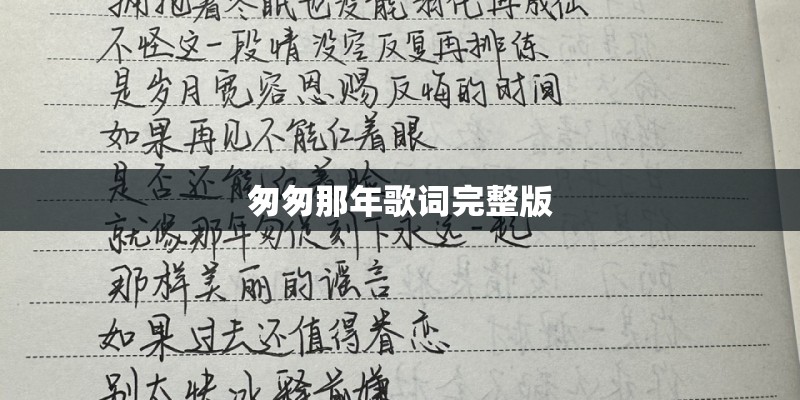 拥抱着冬眠也没能羽化再成仙
不怪这一段情没空反复再排练
是岁月宽容恩赐反悔的时间
如果再见不能红着眼
是否还能红着脸
匆匆那年歌词完整版
就像那年匆促刻下永远一起
那样美丽的谣言
如果过去还值得眷恋
别太快冰释前嫌